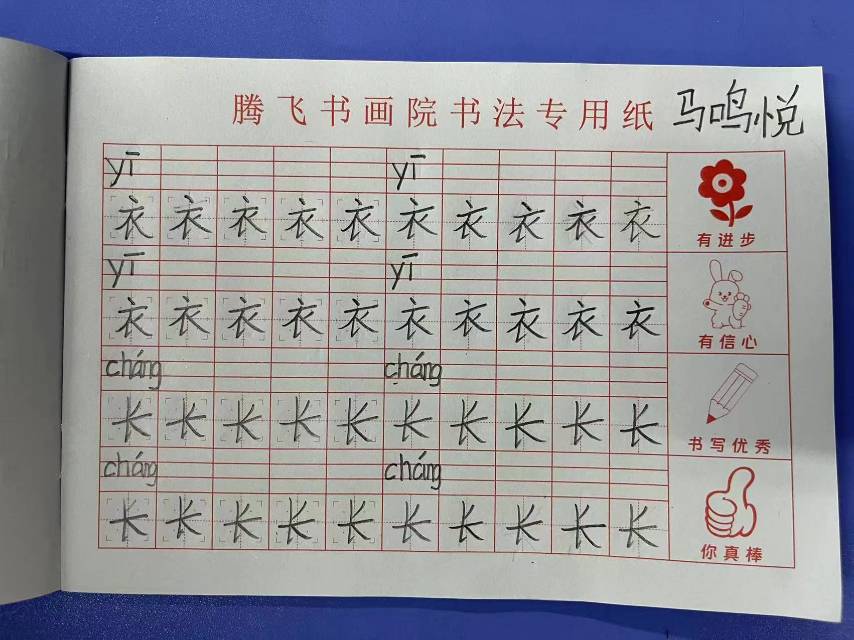 腾飞书画院书法专用纸 马鸣悦
yī yī
衣衣衣衣衣衣衣衣衣衣
有进步
yī yī
衣衣衣衣衣衣衣衣衣衣
有信心
cháng cháng
长长长长长长长长长长
书写优秀
cháng cháng
长长长长长长长长长长
你真棒